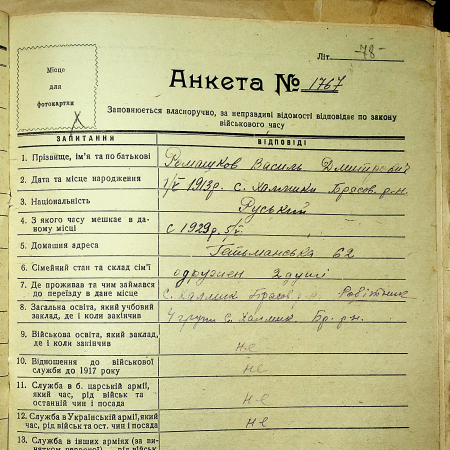 Літ. -78-
Місце
для
фотокартки
Анкета № 1767
Заповнюється власноручно, за неправдиві відомості відповідає по закону
військового часу
ЗАПИТАННЯ
ВІДПОВІДІ
1. Прізвище, ім'я та по батькові
Ромашков Василь Дмитрович
2. Дата та місце народження
1913р. с. Брасов. р-н.
3. Національність
Руський
4. З якого часу мешкає в да-
ному місці
с 1929 р.
5. Домашня адреса
Гетьманська 62
6. Сімейний стан та склад сім'ї
одружен
7. Де проживав та чим займався
до переїзду в дане місце
с. Робітник
8. Загальна освіта, який учбовий
заклад, де і коли закінчив
4 груп с. Бр. р-н.
9. Військова освіта, який заклад,
де і коли закінчив
не
10. Відношення до військової
служби до 1917 року
не
11. Служба в б. царській армії,
який час, рід військ та
останній чин і посада
не
12. Служба в Українській армії, який
час, рід військ та ост. чин і посада
не
13. Служба в інших арміях (за ви-